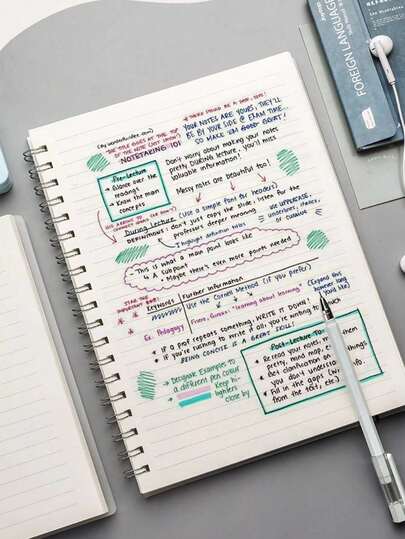 * THERE SHOULD BE A DATE, TOO!
YOUR NOTES ARE YOURS, THEY'LL
BE BY YOUR SIDE @ EXAM TIME.
SO MAKE 'EM GOOD GREAT!
"THE TITLE GOES AT THE TOP
OF THE NOTE (BUT DUH!)"
NOTETAKING 101
Don't worry about making your notes
pretty DURING lecture, you'll miss
valuable information!
Pre-Lecture
Glance over the
readings
Know the main
concepts
Messy notes are beautiful too!
During Lecture (Use a simple font for headers)
DEFINITIONS: don't just copy the slide, listen for the
professor's deeper meaning
I highlight definition notes
USE UPPERCASE,
underlines, *
"This is what a main point looks like
↳ A SubPoint
• Maybe there's even more points needed
STAR THE
IMPORTANT BITS
Keywords
Further Information
Use the Cornell Method (if you prefer)
(Expand this
however long
you'd like)
Ex. Pedagogy
"learning about learning"
• IF a prof repeats something, WRITE IT DOWN!
• If you're rushing to write it all, you're writing too much
BEING CONCISE IS A GREAT SKILL!
→ Designate Examples to
a different pen colour
→ Keep hi-
ghlighters
close by
Post-Lecture To
• Reread your notes, them
pretty, mind map, things
• Get clarification on
you don't understand
• Fill in the gaps (w info.
from the text, etc.)
FOREIGN LANGUAGE